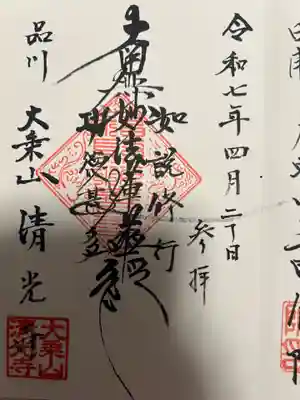 令和七年四月二十日
参拝
如説修行
南無妙法蓮華経
功徳甚多
品川 大乗山 清光
大乗山
清光寺